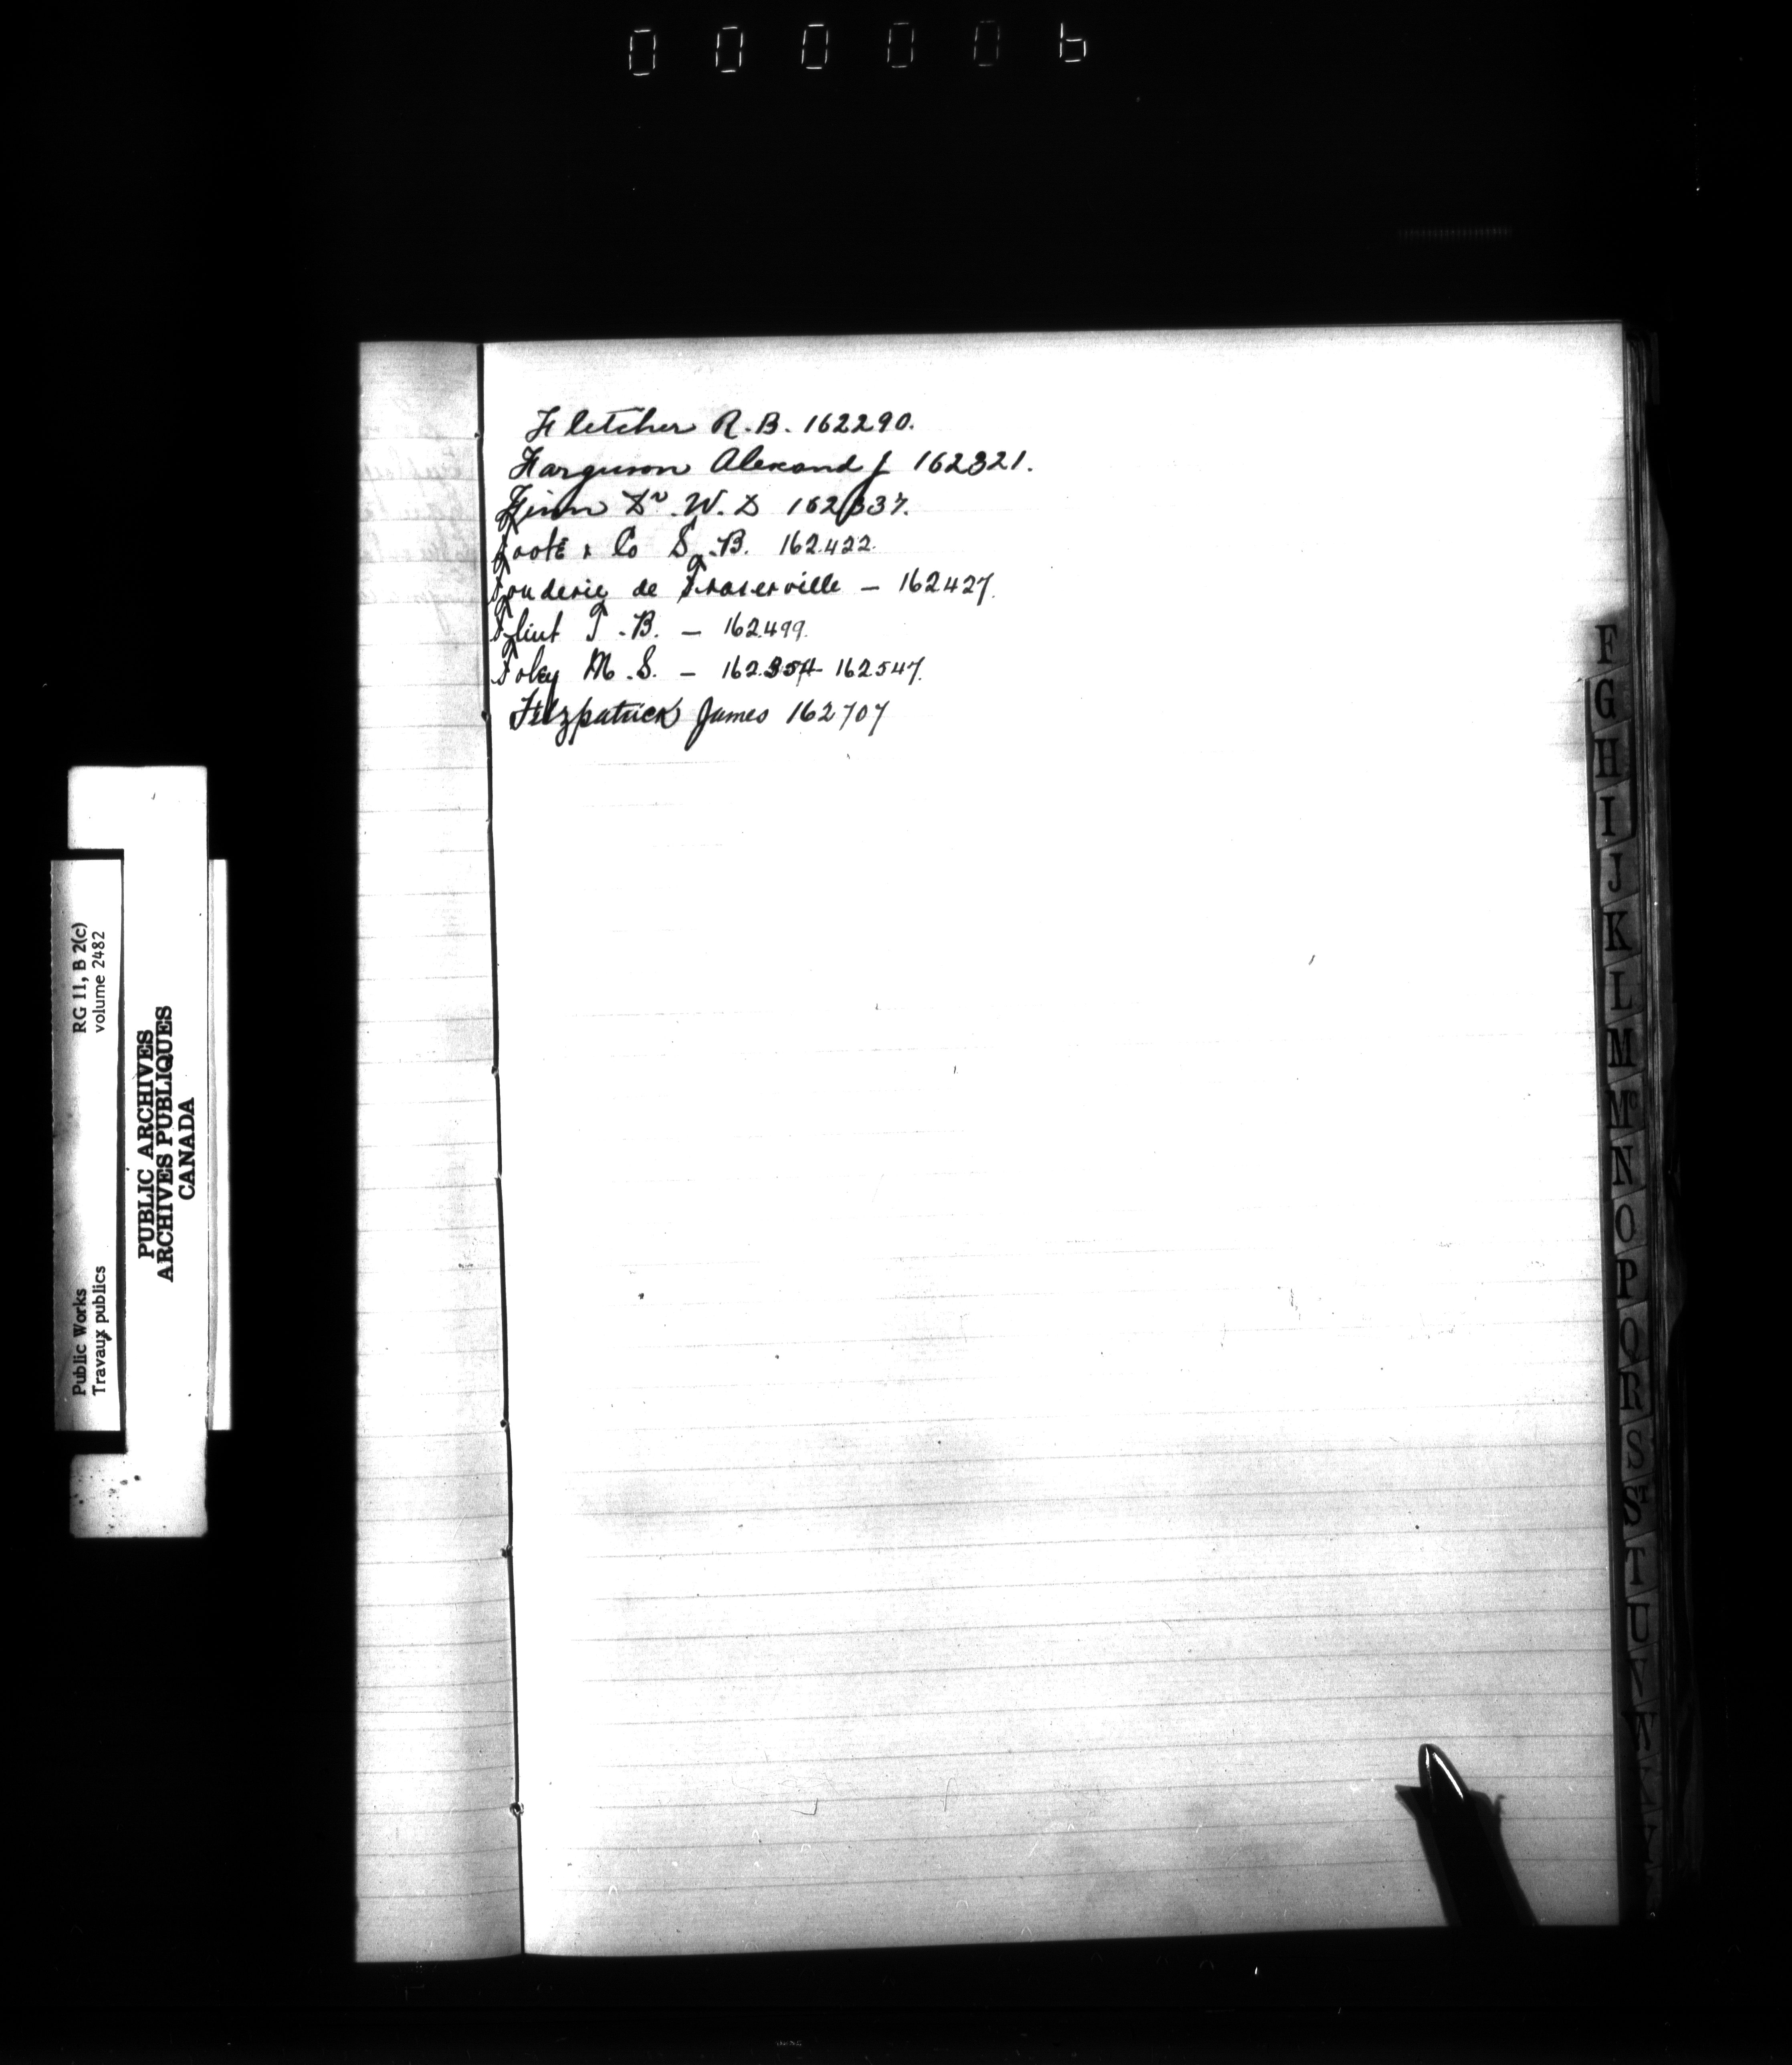 000006
Fletcher R.B. 162290.
Farguson Alexand J 162321.
Finn Dr. W. D 162337.
Foote & Co S. B. 162422.
Fonderie de Fraserville — 162427.
Flint T. B. — 162499.
Foley M. S. — 162354 162547.
Fitzpatrick James 162707
F
G
H
I
J
K
L
M
Mc
N
O
P
Q
R
S
St
T
U
V
W
Public Works
Travaux publics
RG 11, B 2(c)
volume 2482
PUBLIC ARCHIVES
ARCHIVES PUBLIQUES
CANADA